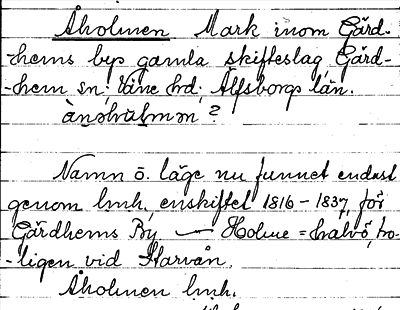 Åholmen Mark inom Gärd-
-hems bys gamla skifteslag Gärd-
-hem sn; Väne hd; Älfsborgs län.
ànəhωlmən?
Namn o. läge nu funnet endast
genom lmh, enskiftet 1816-1837, för
Gärdhems By — Holme = halvö, tro-
-ligen vid Starvån.
Åholmen lmh.